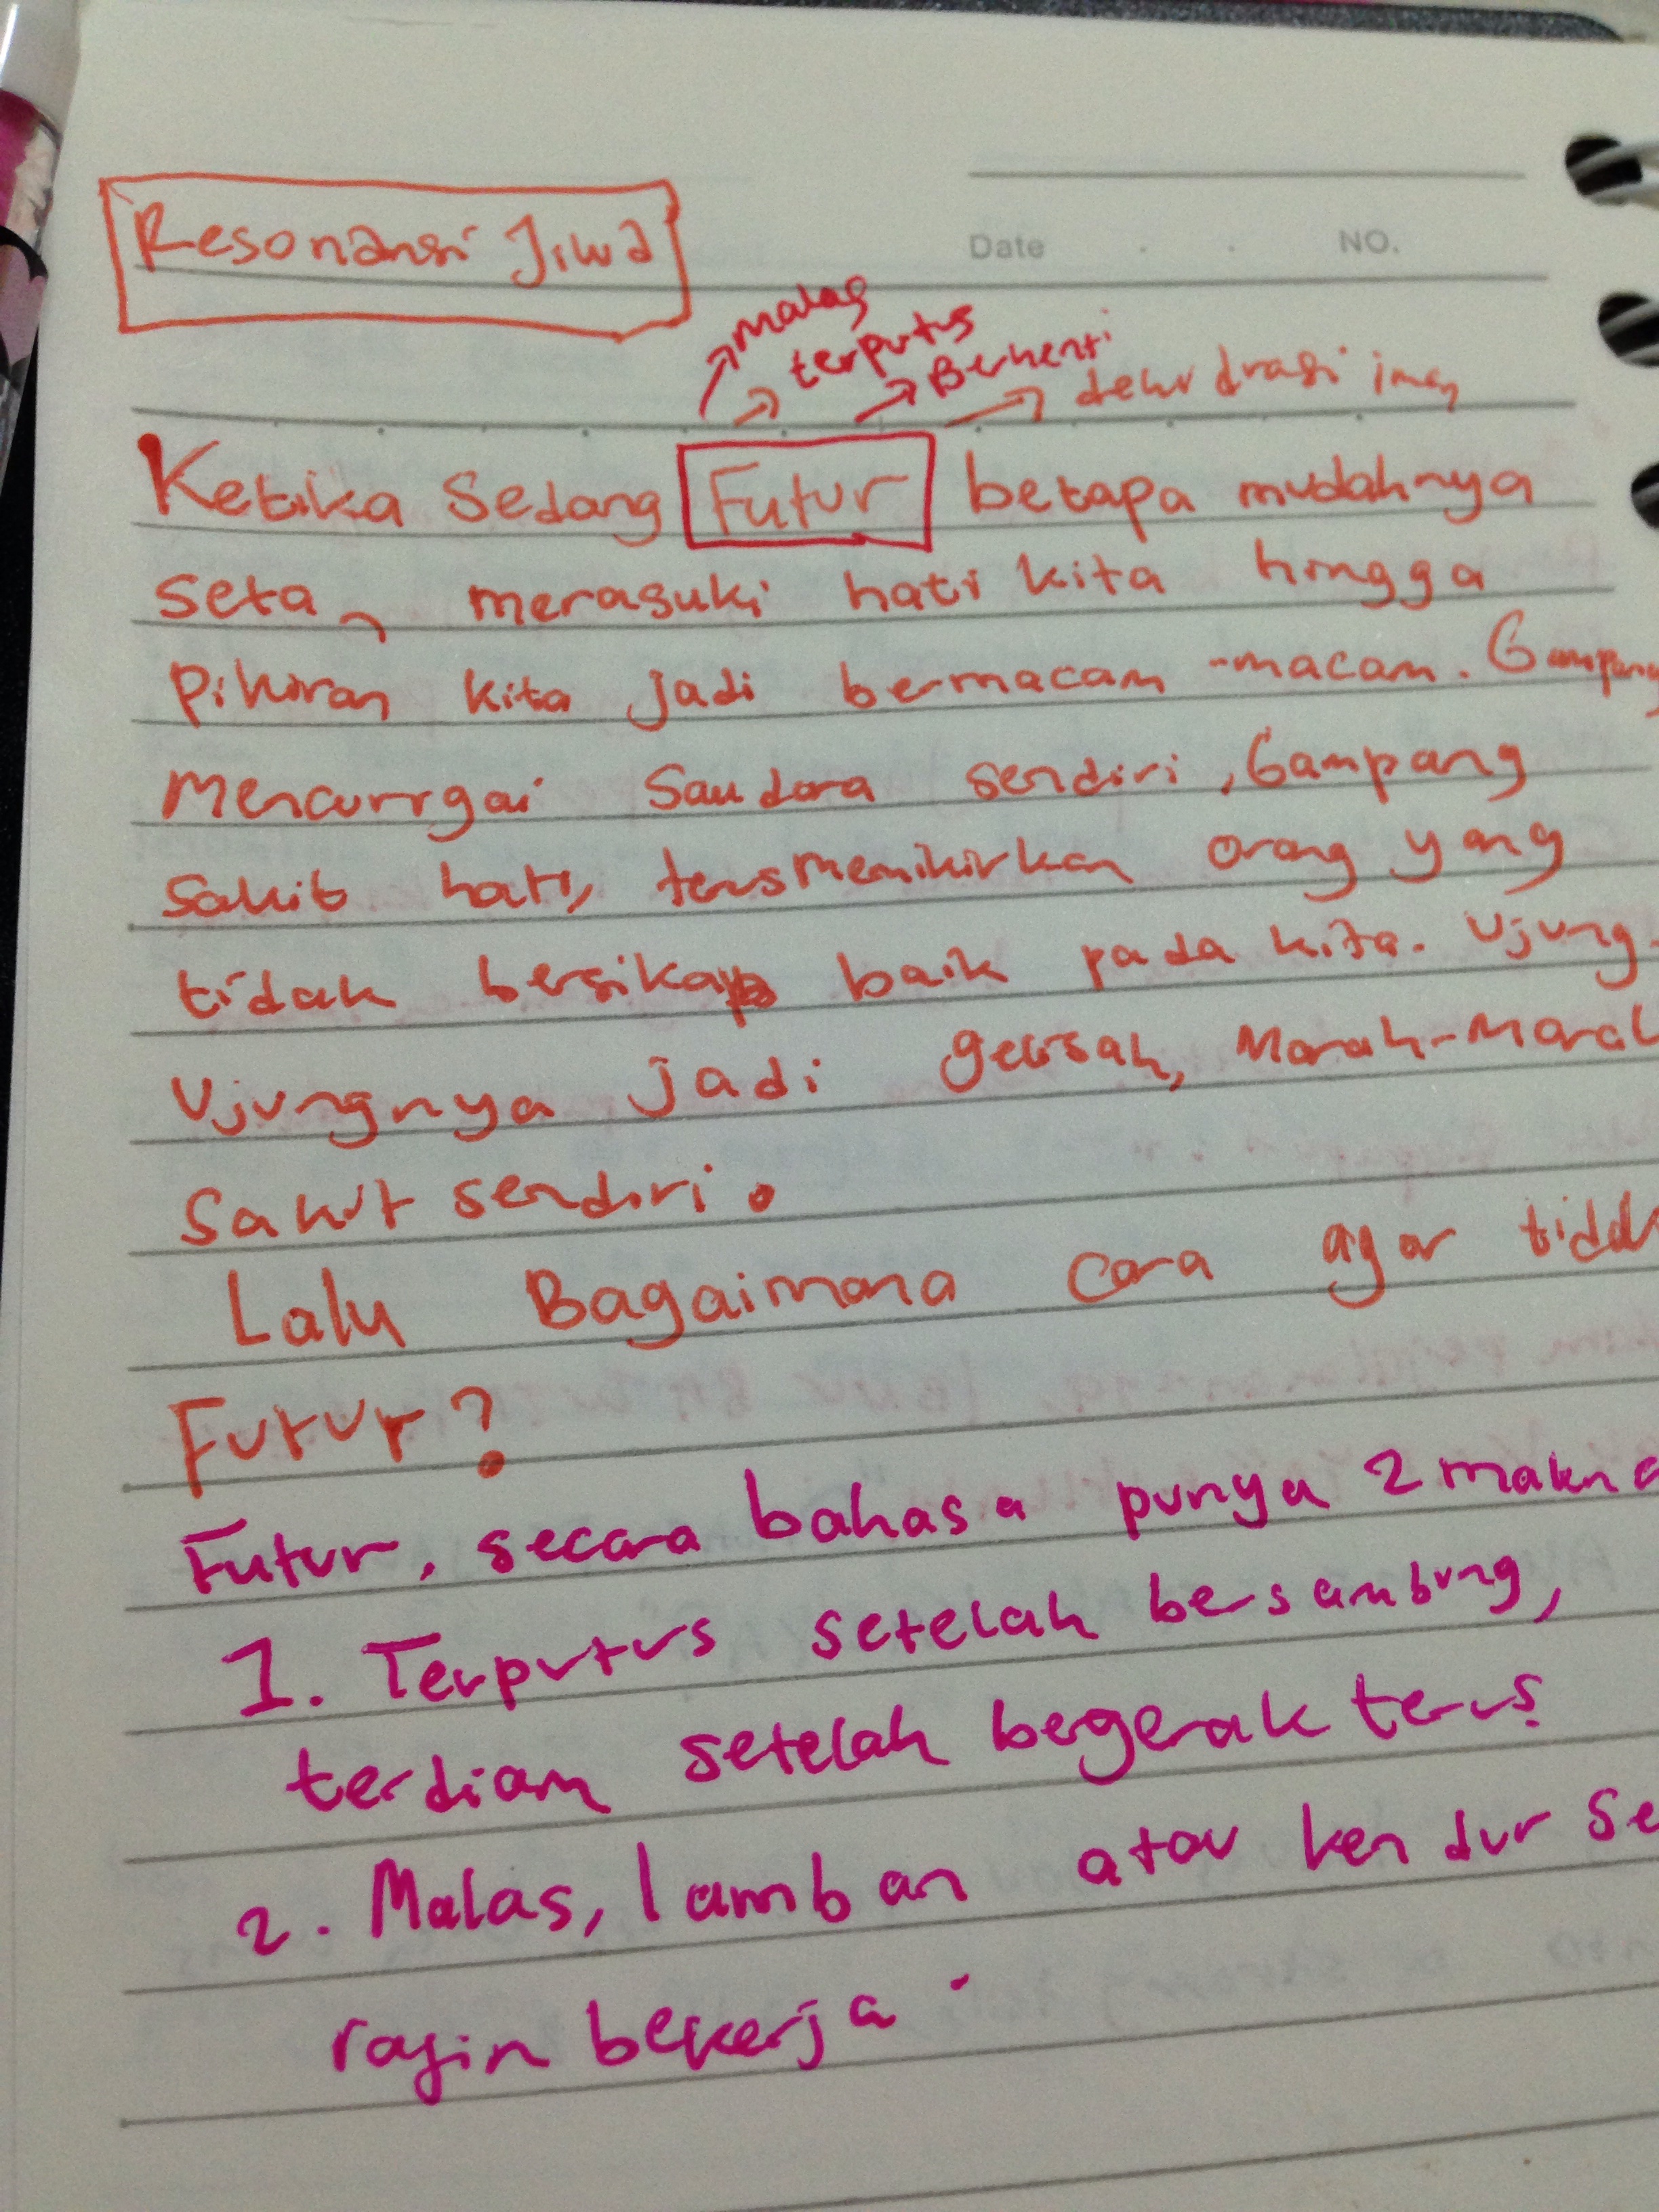 Resonansi Jiwa
Date . . NO.
malas
terputus
Berhenti
dehidrasi iman
Ketika Sedang Futur betapa mudahnya
setan merasuki hati kita hingga
Pikiran kita jadi bermacam-macam. Gampang
Mencurigai Saudara sendiri, Gampang
sakit hati, terus memikirkan orang yang
tidak bersikap baik pada kita. Ujung-
Ujungnya jadi gelisah, Marah-Marah
Sakit sendiri.
Lalu Bagaimana cara agar tidak
Futur?
Futur, secara bahasa punya 2 makna
1. Terputus setelah bersambung,
terdiam setelah begerak terus
2. Malas, lamban atau kendur se
rajin bekerja